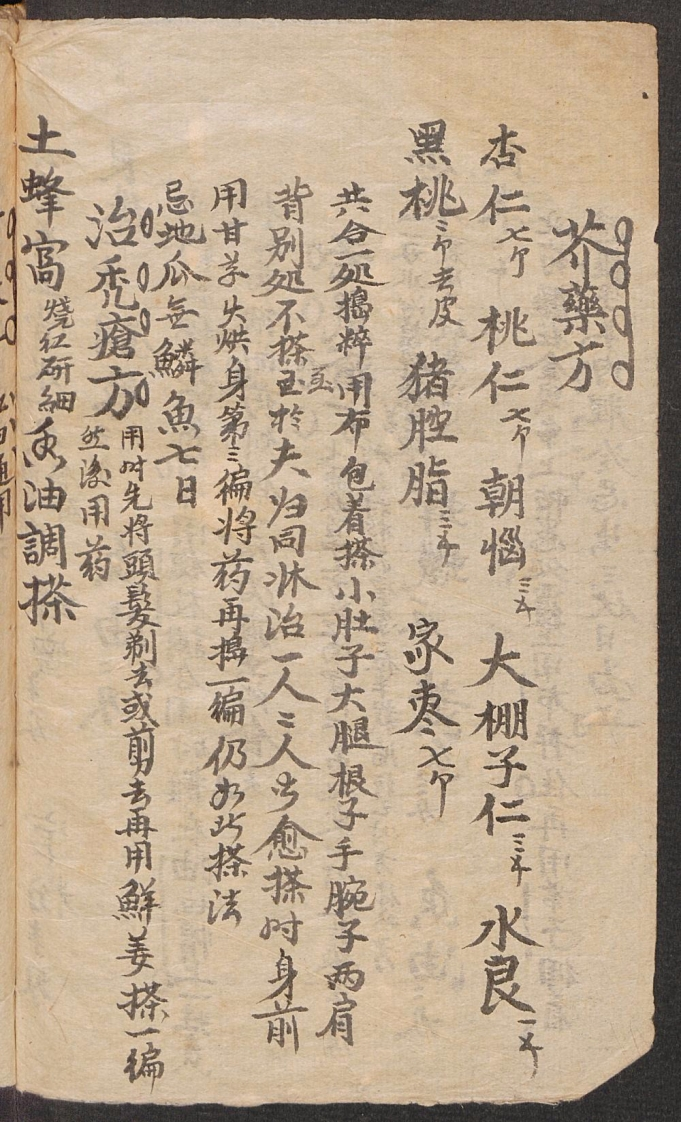 芥藥方
杏仁七个 桃仁七个 朝惱三分 大棚子仁三个 水良一分
黑桃三个去皮 猪腔脂三分 家枣七个
共合一処搗粹用布包着搽小肚子大腿根子手腕子两肩
背别処不搽至於夫妇同牀治一人二人皆愈搽时身前
用甘草火烘身第三徧将药再搗一徧仍如此搽法
忌地瓜無鱗魚七日
治秃瘡方 用时先将頭髮剃去或剪去再用鮮姜搽一徧
然後用药
土蜂窩燒红研細香油調搽